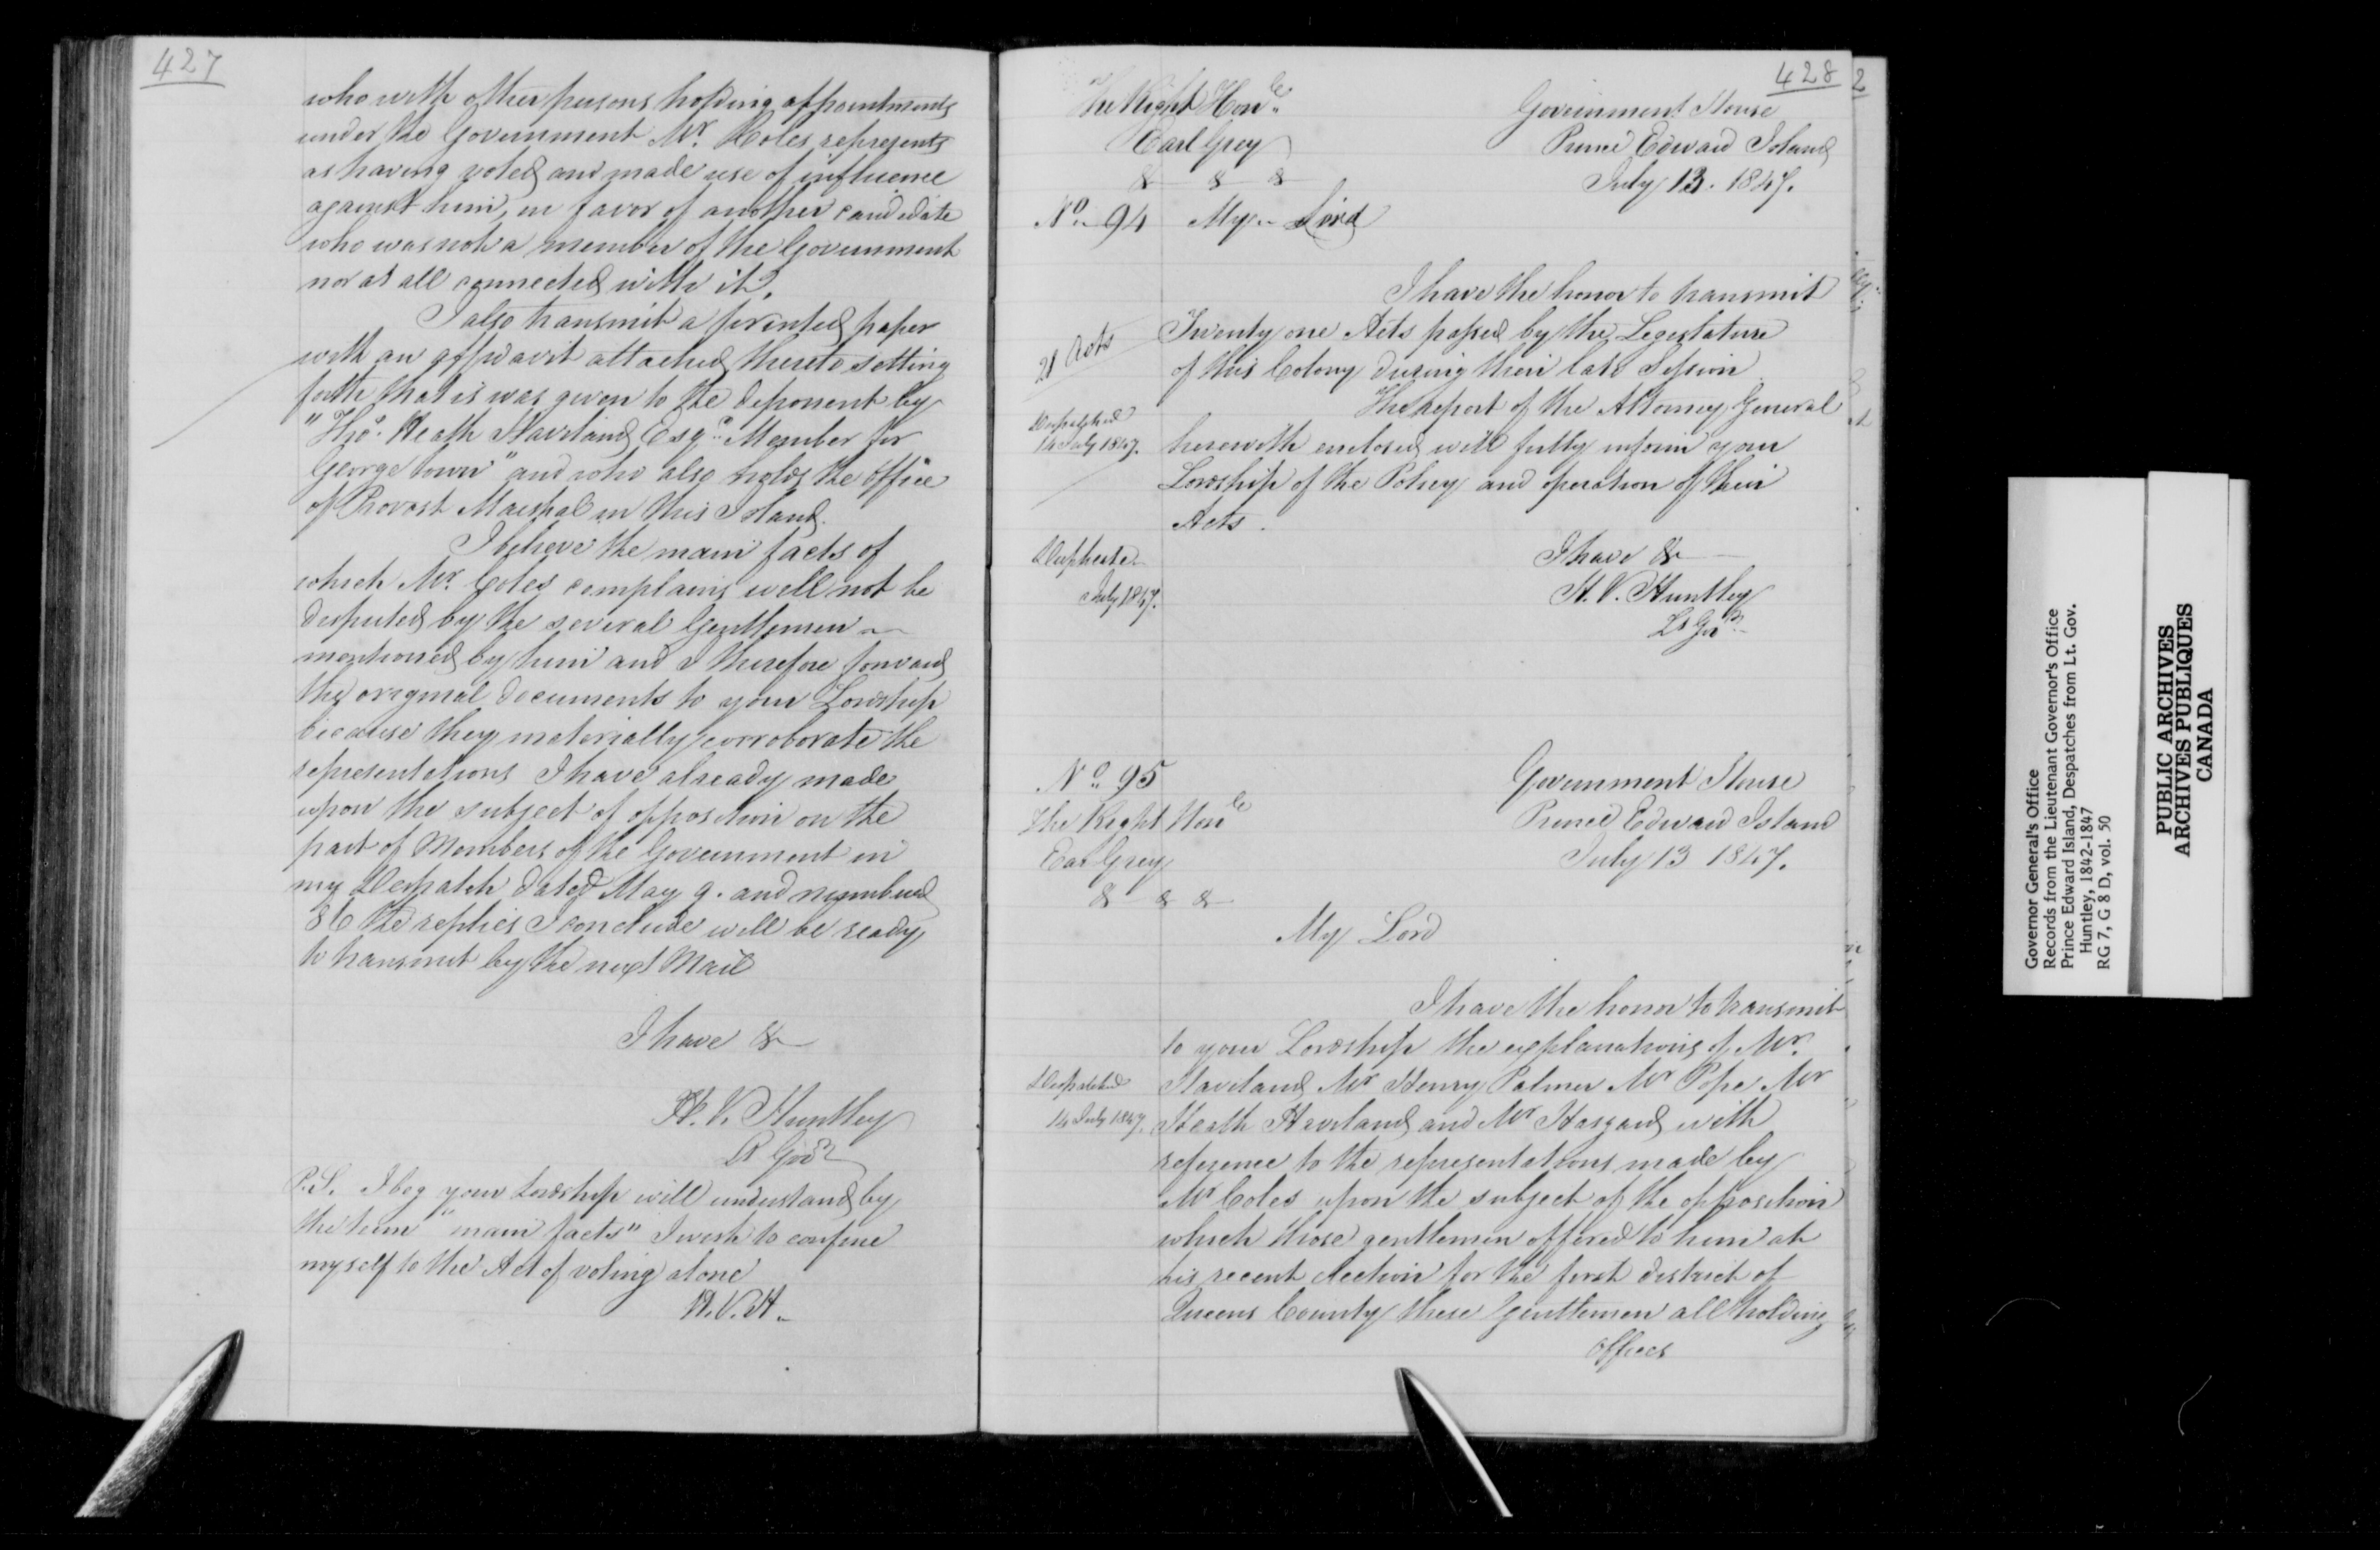 427
who with other persons holding appointments
under the Government Mr. Coles represents
as having voted and made use of influence
against him, in favor of another candidate
who was not a member of the Government
nor at all connected with it.
I also transmit a printed paper
with an affidavit attached thereto setting
forth that it was given to the deponent by
"Thos. Heath Haviland Esqr. Member for
George town" and who also holds the office
of Provost Marshal in this Island.
I believe the main facts of
which Mr. Coles complains will not be
disputed by the several Gentlemen
mentioned by him and I therefore forward
the original documents to your Lordship
because they materially corroborate the
representations I have already made
upon the subject of opposition on the
part of Members of the Government in
my Despatch dated May 9. and numbered
86 the replies I conclude will be ready
to transmit by the next Mail
I have &
H. V. Huntley
Lt Govr
P.S. I beg your Lordship will understand by
the term "main facts" I wish to confine
myself to the Act of voting alone
H. V. H.
428
2
The Right Honle
Earl Grey
& & &
Government House
Prince Edward Island
July 13. 1847.
No. 94 My Lord
I have the honor to transmit
21 Acts
Twenty one Acts passed by the Legislature
of this Colony during their late Session
The report of the Attorney General
Despatched
14 July 1847.
herewith enclosed will fully inform your
Lordship of the Policy and operation of their
Acts.
Duplicate
July 1847.
I have &
H. V. Huntley
Lt Govr
No. 95
The Right Honle
Earl Grey
& & &
Government House
Prince Edward Island
July 13 1847.
My Lord
I have the honor to transmit
to your Lordship the explanations of Mr.
Despatched
14 July 1847.
Haviland, Mr Henry Palmer Mr Pope Mr
Heath Haviland and Mr Haszard with
reference to the representations made by
Mr Coles upon the subject of the opposition
which those gentlemen offered to him at
his recent election for the first district of
Queens County these Gentlemen all holding
offices
Governor General's Office
Records from the Lieutenant Governor's Office
Prince Edward Island, Despatches from Lt. Gov.
Huntley, 1842-1847
RG 7, G 8 D, vol. 50
PUBLIC ARCHIVES
ARCHIVES PUBLIQUES
CANADA